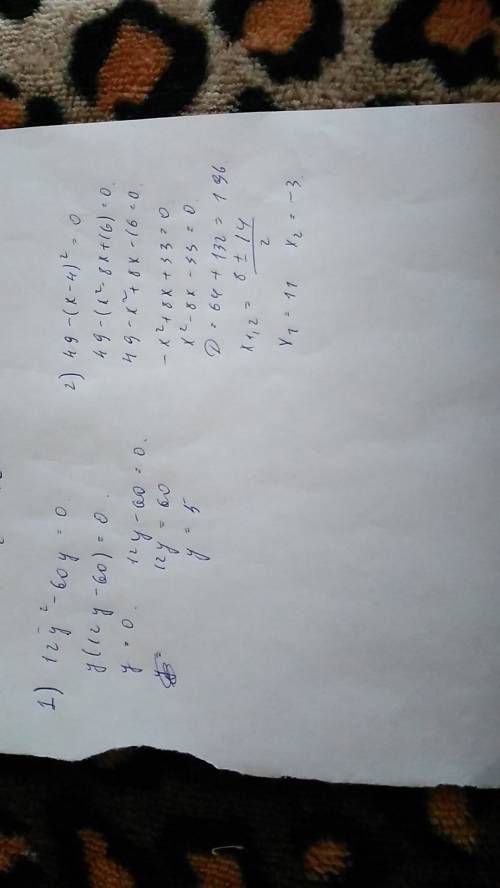 1) 12y² - 60y = 0.
y(12y - 60) = 0.
y = 0. 12y - 60 = 0.
12y = 60
y = 5
2) 49 - (x - 4)² = 0
49 - (x² - 8x + 16) = 0.
49 - x² + 8x - 16 = 0.
- x² + 8x + 33 = 0
x² - 8x - 33 = 0.
D = 64 + 132 = 196.
x1,2 = 8 ± 14 / 2
x1 = 11 x2 = -3.